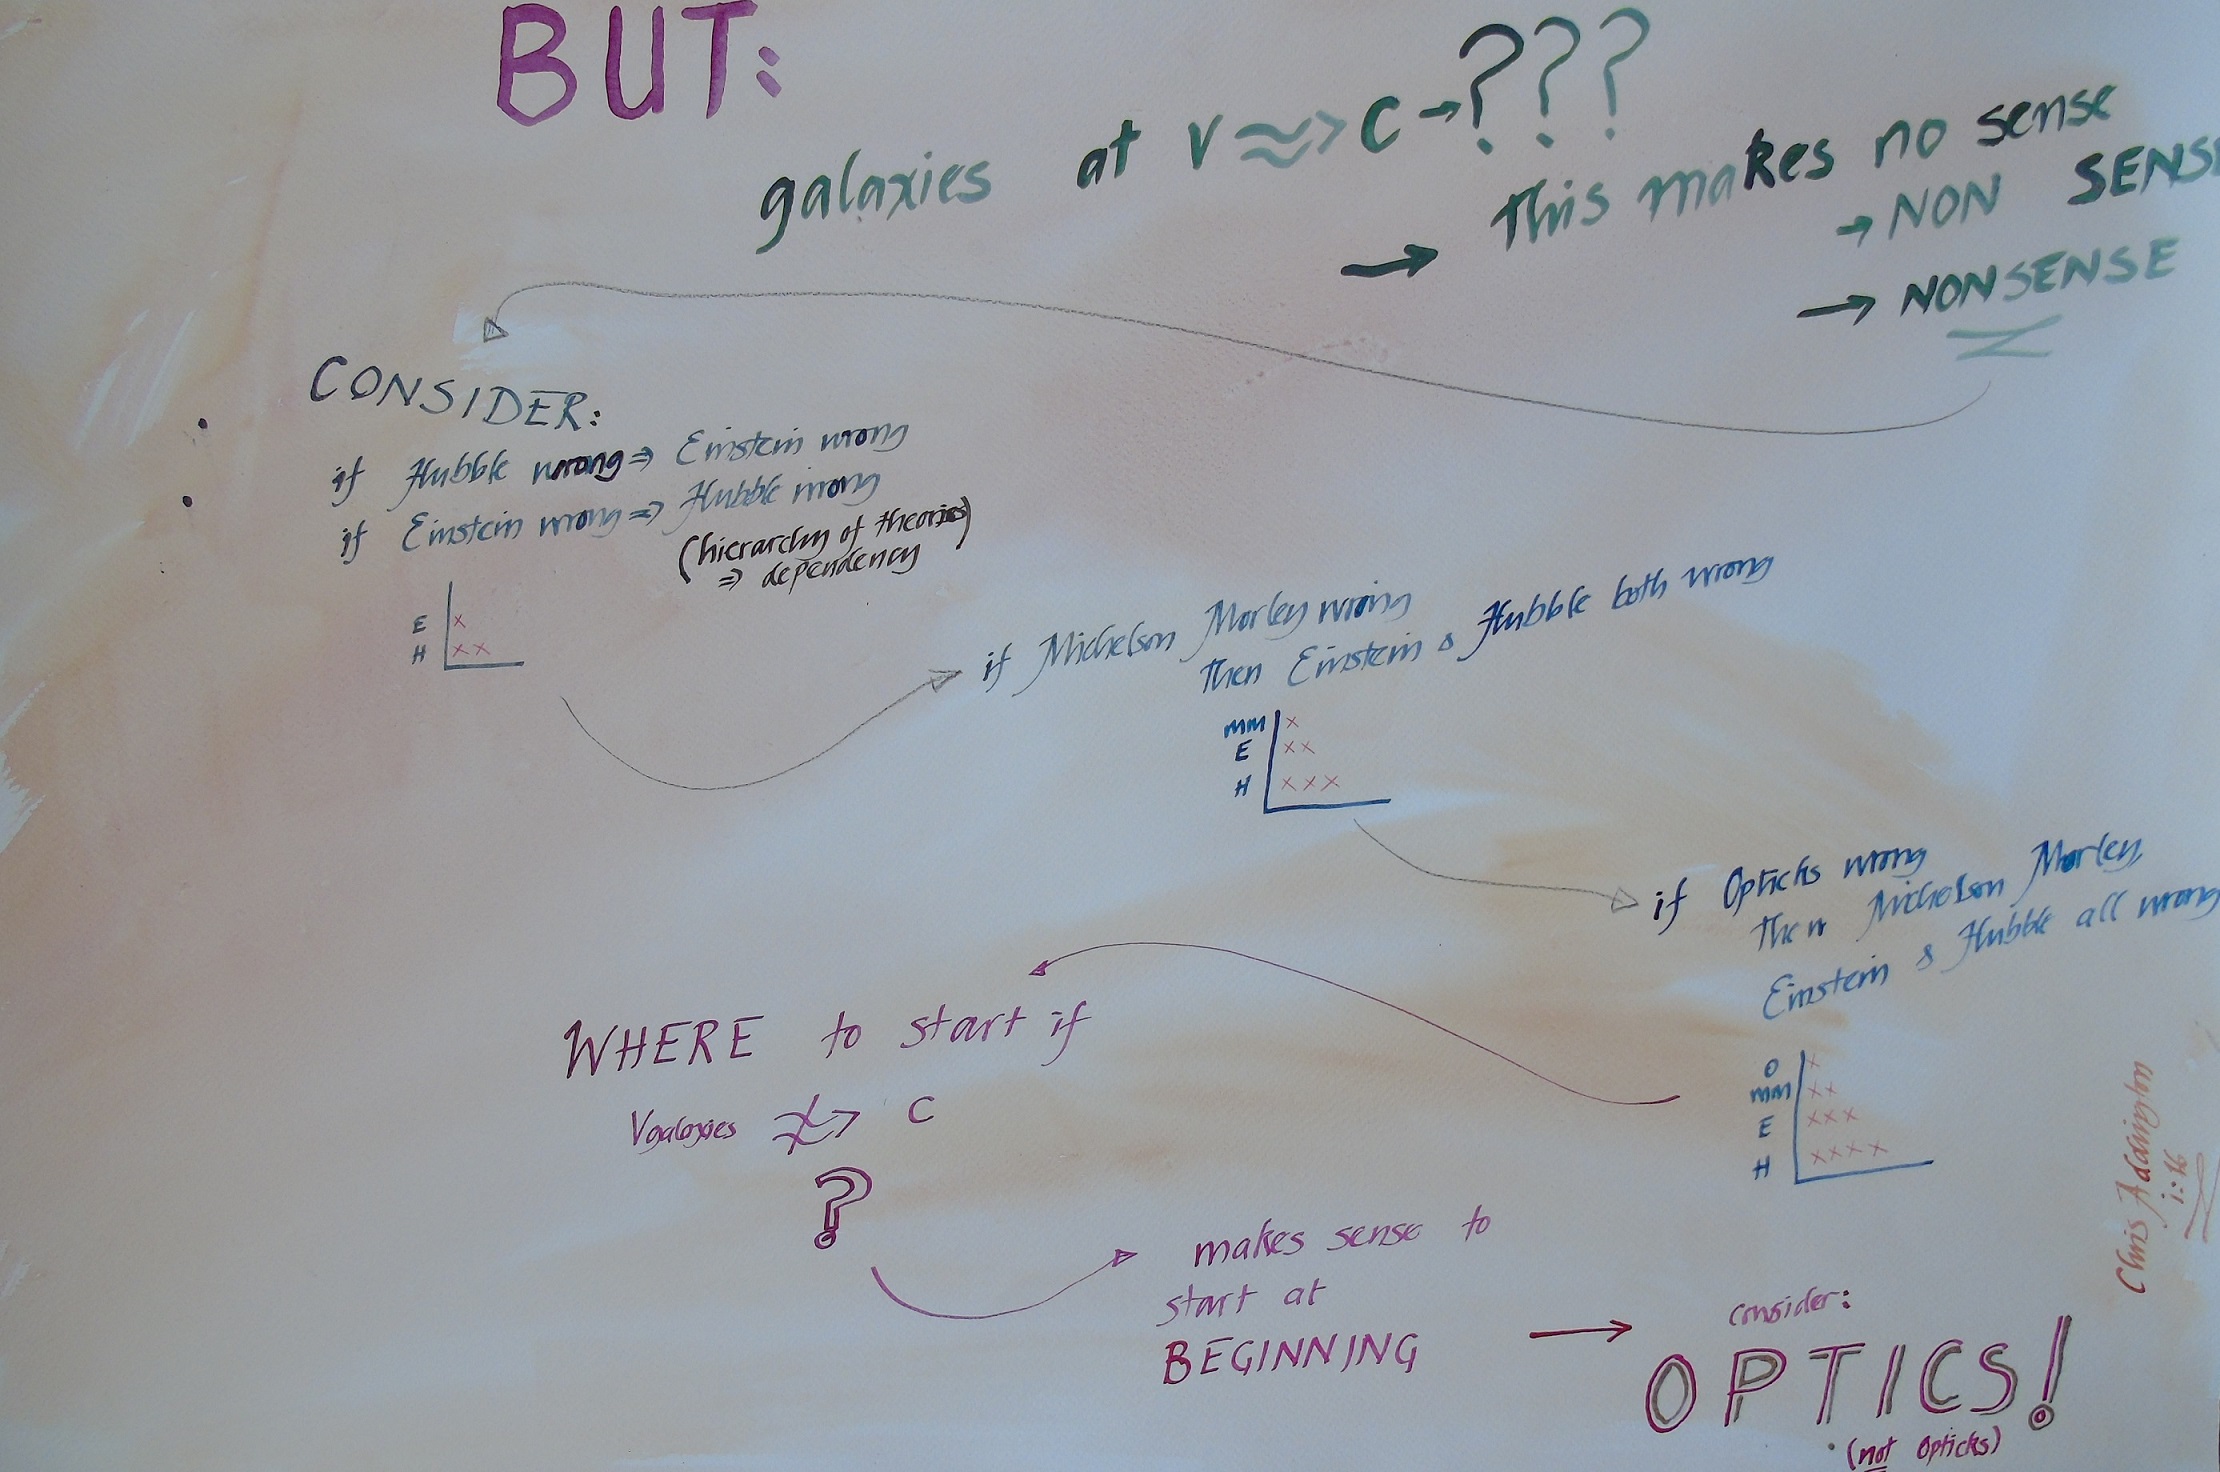 BUT:
galaxies at v ≈> C → ???
→ This makes no sense
→ NON SENSE
→ NONSENSE
CONSIDER:
if Hubble wrong ⇒ Einstein wrong
if Einstein wrong ⇒ Hubble wrong
(hierarchy of theories)
⇒ dependency
E x
H x x
if Michelson Morley wrong
Then Einstein & Hubble both wrong
MM x
E x x
H x x x
if Opticks wrong
Then Michelson Morley,
Einstein & Hubble all wrong
O x
MM x x
E x x x
H x x x x
WHERE to start if
Vgalaxies ≉> C
?
makes sense to
start at
BEGINNING
→ consider:
OPTICS!
(not Opticks)
Chris Addington
i:16